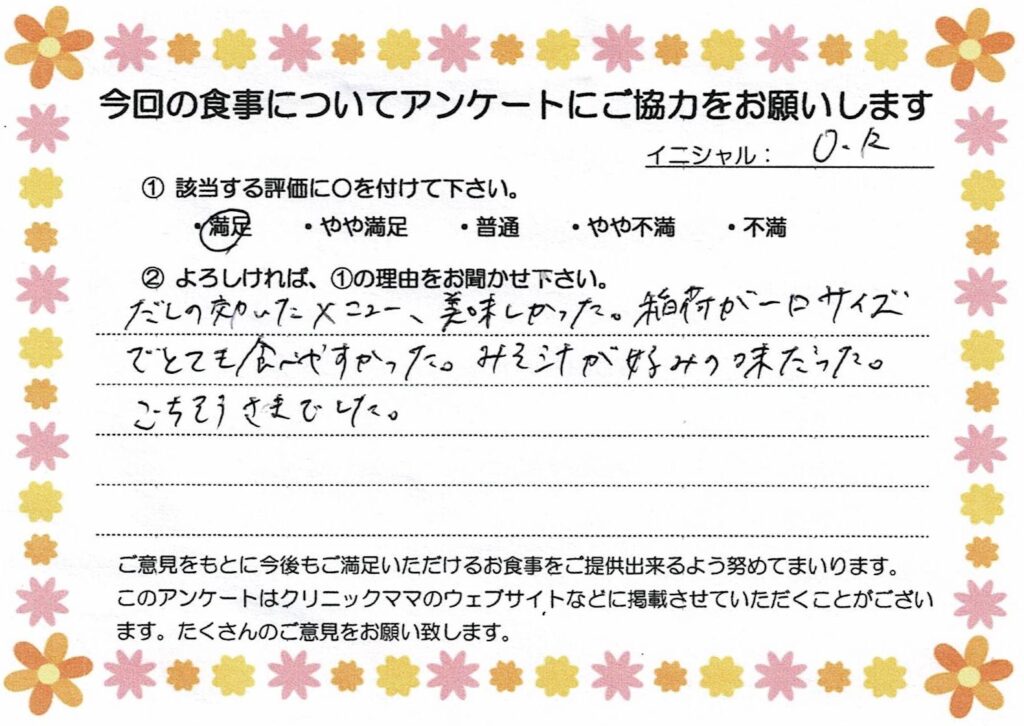 今回の食事についてアンケートにご協力をお願いします
イニシャル： O.K
① 該当する評価に〇を付けて下さい。
・満足 ・やや満足 ・普通 ・やや不満 ・不満
② よろしければ、①の理由をお聞かせ下さい。
だしの効いたメニュー、美味しかった。稲荷が一口サイズ
でとても食べやすかった。みそ汁が好みの味だった。
ごちそうさまでした。
ご意見をもとに今後もご満足いただけるお食事をご提供出来るよう努めてまいります。
このアンケートはクリニックママのウェブサイトなどに掲載させていただくことがござい
ます。たくさんのご意見をお願い致します。